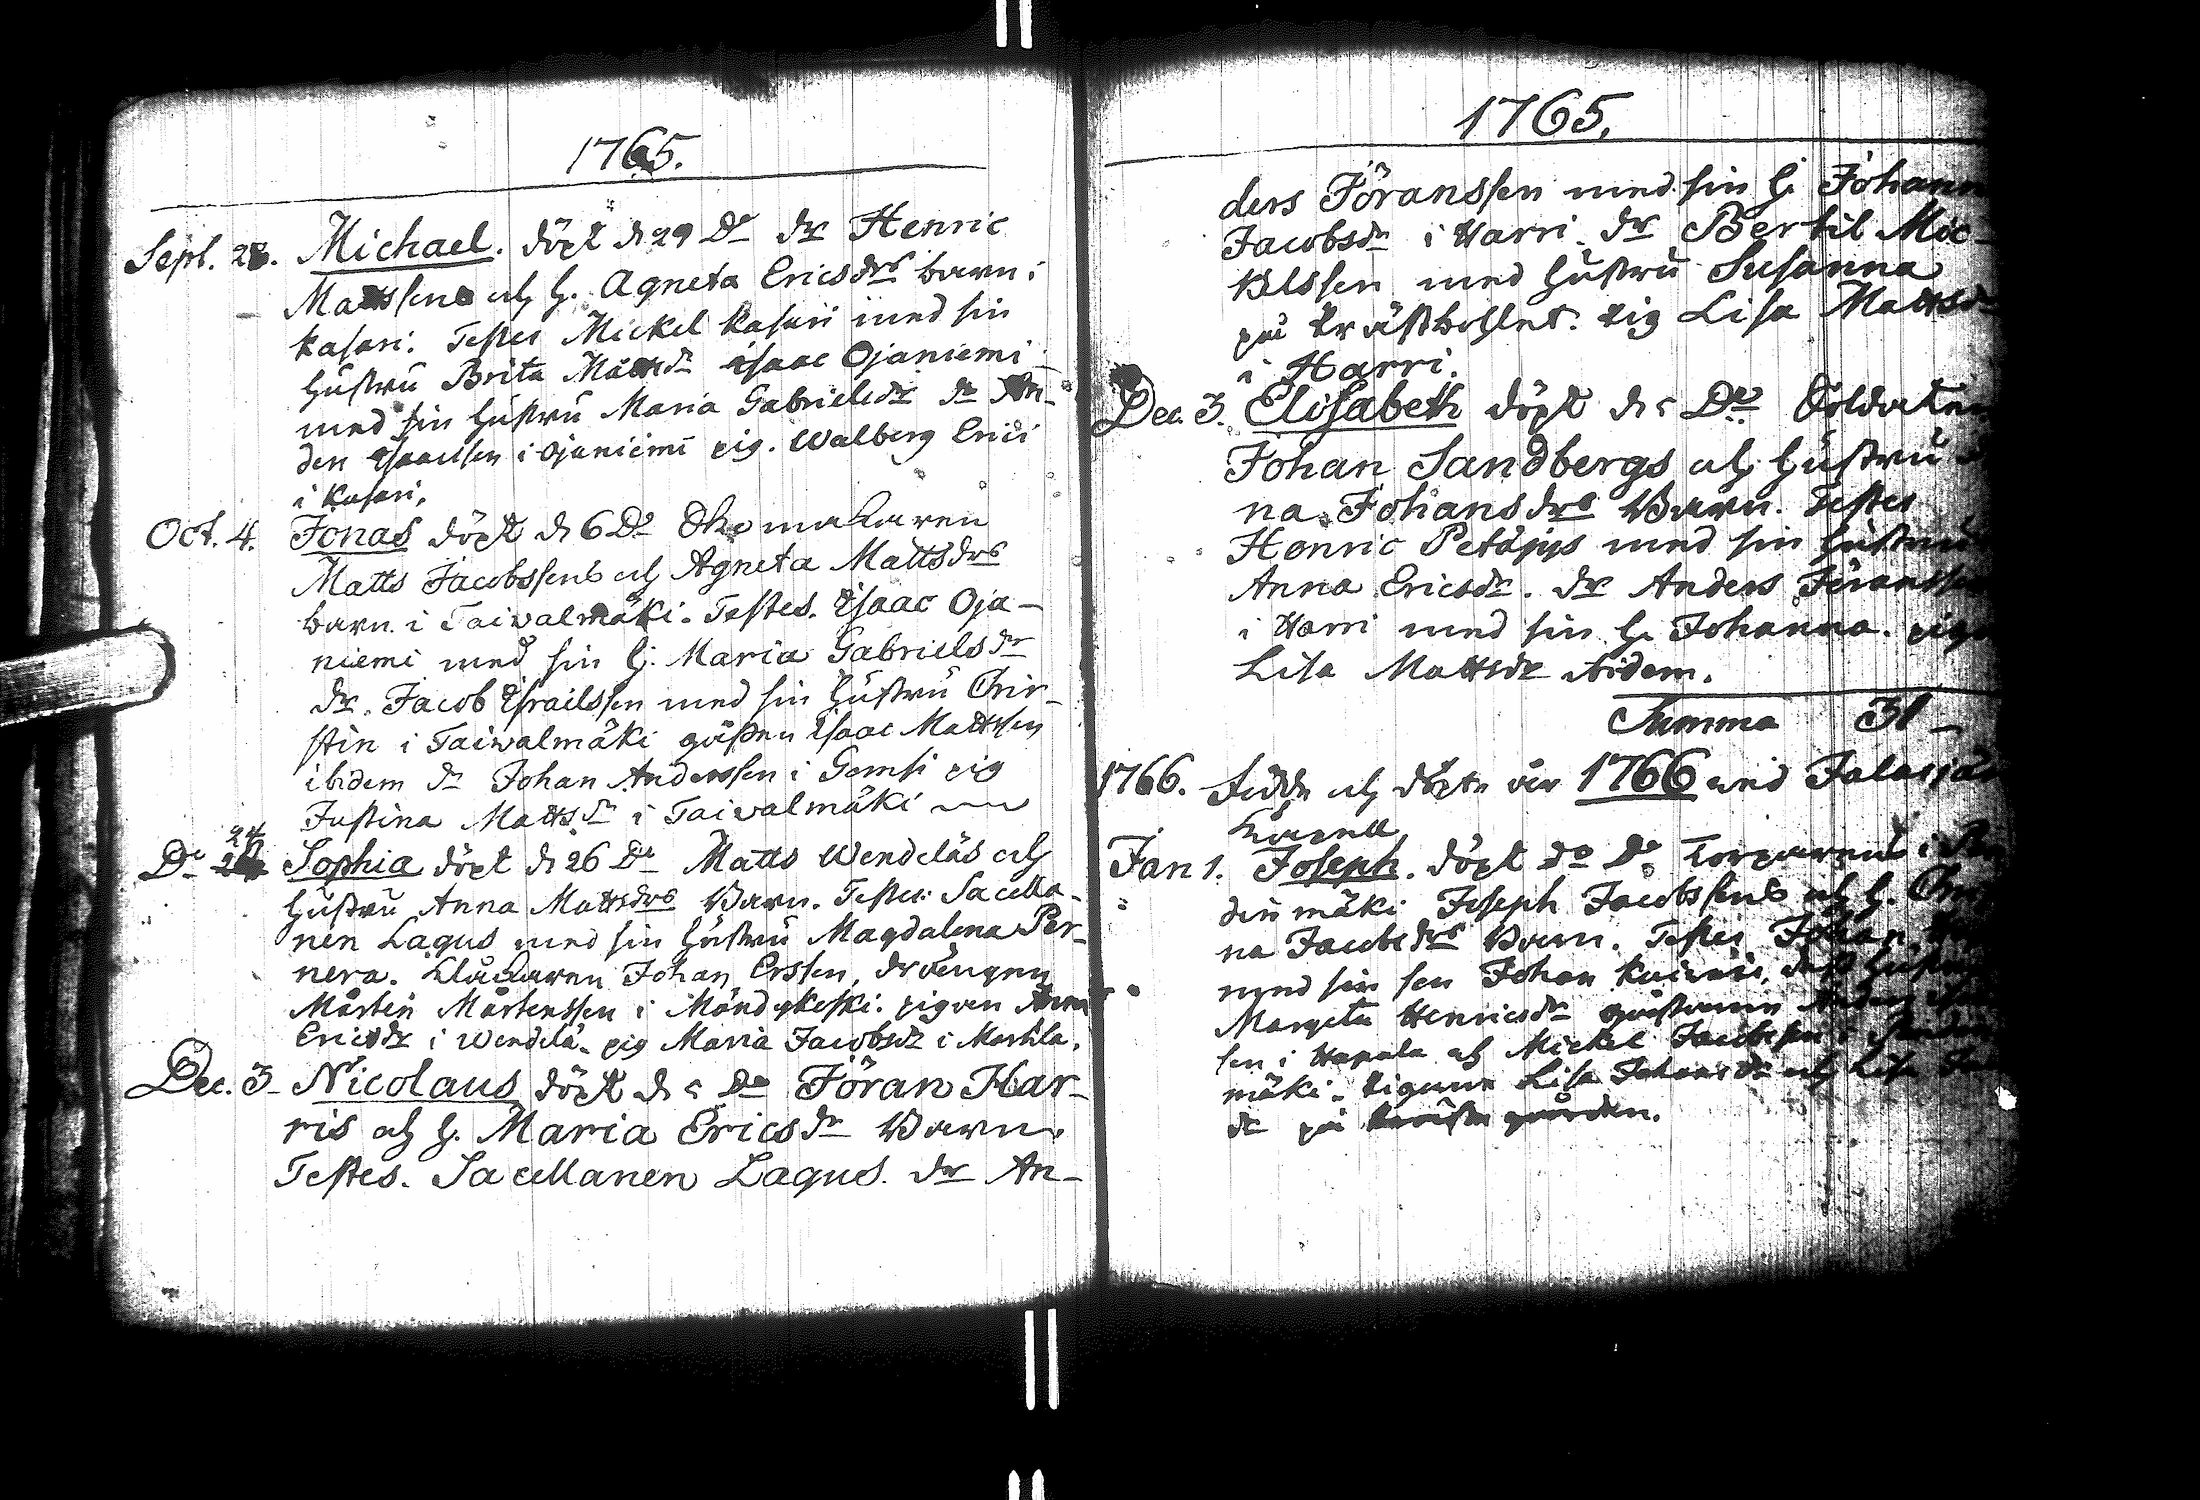 1765.
Sept. 28. Michael. döpt d 29 Do dr Henric
Mattssens och h. Agneta Ericsdrs barn i
Kasari. Testes Mickel Kasari med sin
hustru Brita Mattsdr Isaac Ojaniemi
med sin hustru Maria Gabrielsdr dr An-
ders Isaacssen i Ojaniemi pig. Walberg Erici
i Kasari.
Oct. 4. Jonas döpt d 6 Do Skomakaren
Matts Jacobssens och Agneta Mattsdrs
barn i Taivalmäki. Testes. Isaac Oja-
niemi med sin h. Maria Gabrielsdr
dr. Jacob Israilssen med sin hustru Chir-
stin i Taivalmäki gåssen Isaac Mattssen
ibidem dr Johan Anderssen i Gemsi pig
Justina Mattsdr i Taivalmäki
Do 24 Sophia döpt d 26 Do Matts Wendeläs och
hustru Anna Mattsdrs Barn. Testes: Sacella-
nen Lagus med sin hustru Magdalena Per-
nera. Klåckaren Johan Erssen, drängen
Mårten Mårtenssen i Mändykoski. pigan Anna
Ericsdr i Wendelä. pig Maria Jacobsdr i Marttila.
Dec. 3. Nicolaus döpt d 5 Do Jöran Har-
ris och h. Maria Ericsdr Barn.
Testes. Sacellanen Lagus. dr An-
1765.
ders Jöranssen med sin h. Johanna
Jacobsdr i Harri. dr Bertil Mic-
kelssen med hustru Susanna
på Prästbohlet. pig Lisa Mattsdr
i Harri.
Dec. 3. Elisabeth döpt d 5 Do Soldaten
Johan Sandbergs och hustru
na Johansdrs Barn. Testes
Henric Petäjys med sin hustru
Anna Ericsdr. dr Anders Jöranssen
i Harri med sin h. Johanna. pig
Lisa Mattsdr ibidem.
Summa 31 -
1766. Födde och döpte år 1766 wid Jalasjär
Kapell
Jan 1. Joseph. döpt do Do Torparens i
denmäki Joseph Jacobssens och h. Chris
na Jacobsdrs Barn. Testes Johan
med sin son Johan hustru
Margeta Henricsdr Anders
sen i Hapala och Mickel Jacobssen i
mäki. Pigorne Lisa Johansdr och Lisa
dr på gården.